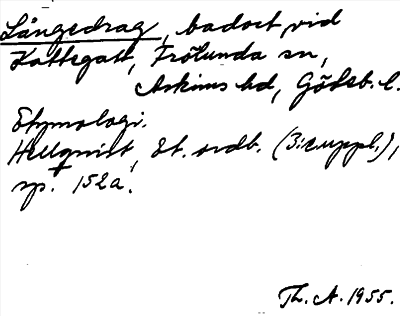 Långedrag, badort vid
Kattegatt, Frölunda sn,
Askims hd, Göteb. l.
Etymologi.
Hellquist, Et. ordb. (3:e uppl.),
sp. 152a.
Th. A. 1955.